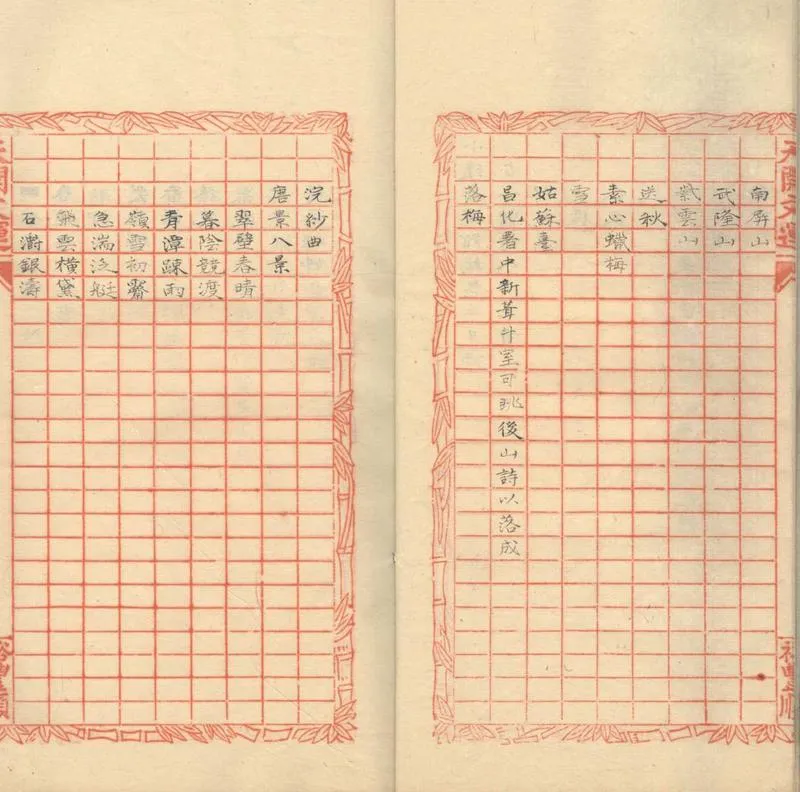 南屏山
武隆山
紫雲山
送秋
素心蠟梅
雪
姑蘇臺
昌化署中新葺斗室可眺後山詩以落成
落梅
浣紗曲
唐景八景
翠壁春晴
暮陰競渡
青潭踈雨
嶺雪初霽
急湍泛艇
飛雲橫黛
石瀨銀濤